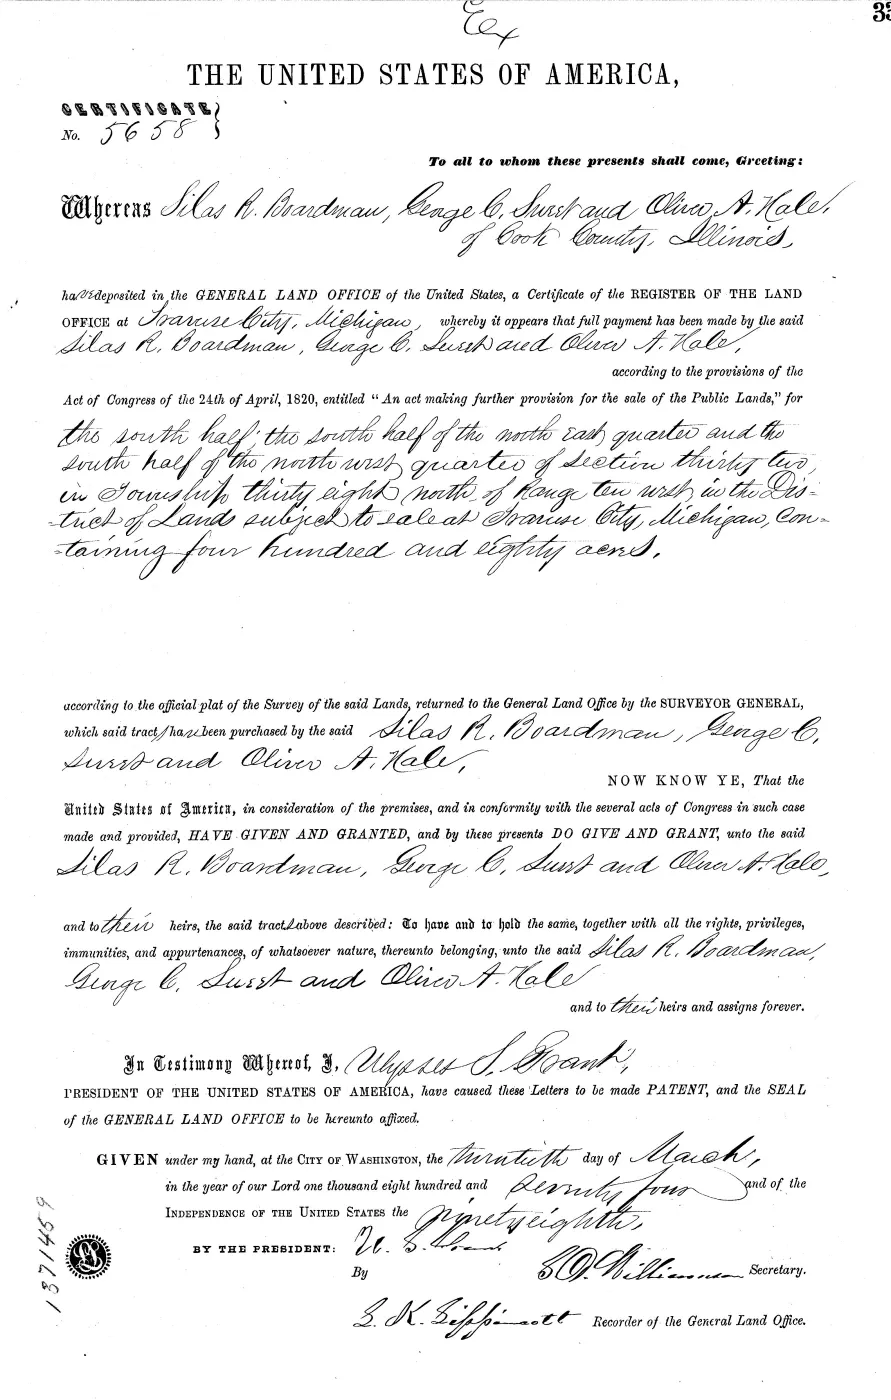 Ex
33
THE UNITED STATES OF AMERICA,
CERTIFICATE
No. 5658
To all to whom these presents shall come, Greeting:
Whereas Silas R. Boardman, George C. Sweet and Oliver A. Hale,
of Cook County, Illinois,
have deposited in the GENERAL LAND OFFICE of the United States, a Certificate of the REGISTER OF THE LAND
OFFICE at Traverse City, Michigan, whereby it appears that full payment has been made by the said
Silas R. Boardman, George C. Sweet and Oliver A. Hale,
according to the provisions of the
Act of Congress of the 24th of April, 1820, entitled "An act making further provision for the sale of the Public Lands," for
the south half; the south half of the north east quarter and the
south half of the north west quarter of section thirty two,
in Township thirty eight north, of Range ten west, in the Dis-
-trict of Lands subject to sale at Traverse City, Michigan, con-
-taining four hundred and eighty acres.
according to the official plat of the Survey of the said Lands, returned to the General Land Office by the SURVEYOR GENERAL,
which said tracts have been purchased by the said Silas R. Boardman, George C.
Sweet and Oliver A. Hale,
NOW KNOW YE, That the
United States of America, in consideration of the premises, and in conformity with the several acts of Congress in such case
made and provided, HAVE GIVEN AND GRANTED, and by these presents DO GIVE AND GRANT, unto the said
Silas R. Boardman, George C. Sweet and Oliver A. Hale,
and to their heirs, the said tracts above described: To have and to hold the same, together with all the rights, privileges,
immunities, and appurtenances, of whatsoever nature, thereunto belonging, unto the said Silas R. Boardman,
George C. Sweet and Oliver A. Hale
and to their heirs and assigns forever.
In Testimony Whereof, I, Ulysses S. Grant,
PRESIDENT OF THE UNITED STATES OF AMERICA, have caused these Letters to be made PATENT, and the SEAL
of the GENERAL LAND OFFICE to be hereunto affixed.
GIVEN under my hand, at the CITY OF WASHINGTON, the twentieth day of March,
in the year of our Lord one thousand eight hundred and seventy four and of the
INDEPENDENCE OF THE UNITED STATES the ninety eighth.
BY THE PRESIDENT: U. S. Grant
By S. D. Williamson Secretary.
L. K. Lippincott Recorder of the General Land Office.
1371459